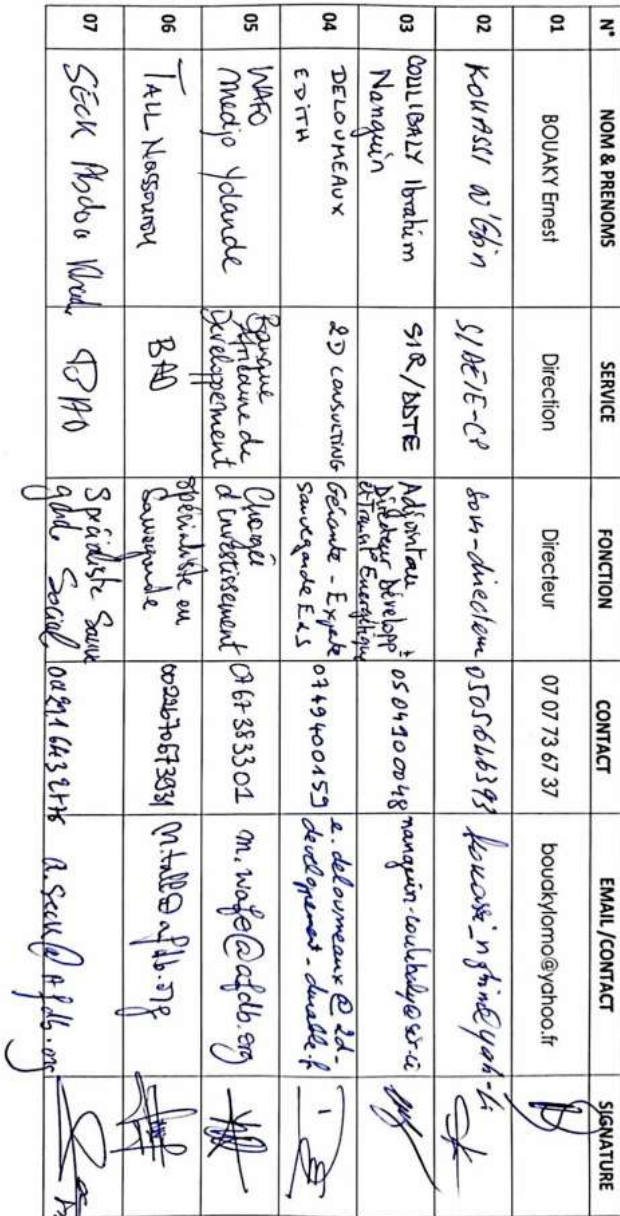 N° NOM & PRENOMS SERVICE FONCTION CONTACT EMAIL /CONTACT SIGNATURE
01 BOUAKY Ernest Direction Directeur 07 07 73 67 37 bouakylomo@yahoo.fr
02 KOUASSI N'Gbin S/AEIE-CP Sous-directeur 0505646393
03 COULIBALY Ibrahim
Nanguin
SIR/DDTE
Adjoint au
Directeur Développt
et Transit° Energétique
0504100048
nanguin.coulibaly@sir.ci
04 DELOUMEAUX
EDITH
2D CONSULTING
Gérante - Experte
Sauvegarde E&S
0749400159
e.deloumeaux@2d-
developpement-durable.fr
05 WAFO
Medjo Yolande
Banque
Africaine de
Développement
Chargée
d'investissement
0767383301
m.wafo@afdb.org
06 TALL Nassourou
BAD
Spécialiste en
Sauvegarde
n.tall@afdb.org
07 SECK Abdou
BAD
Spécialiste Sauve
garde Social
a.seck@Afdb.org